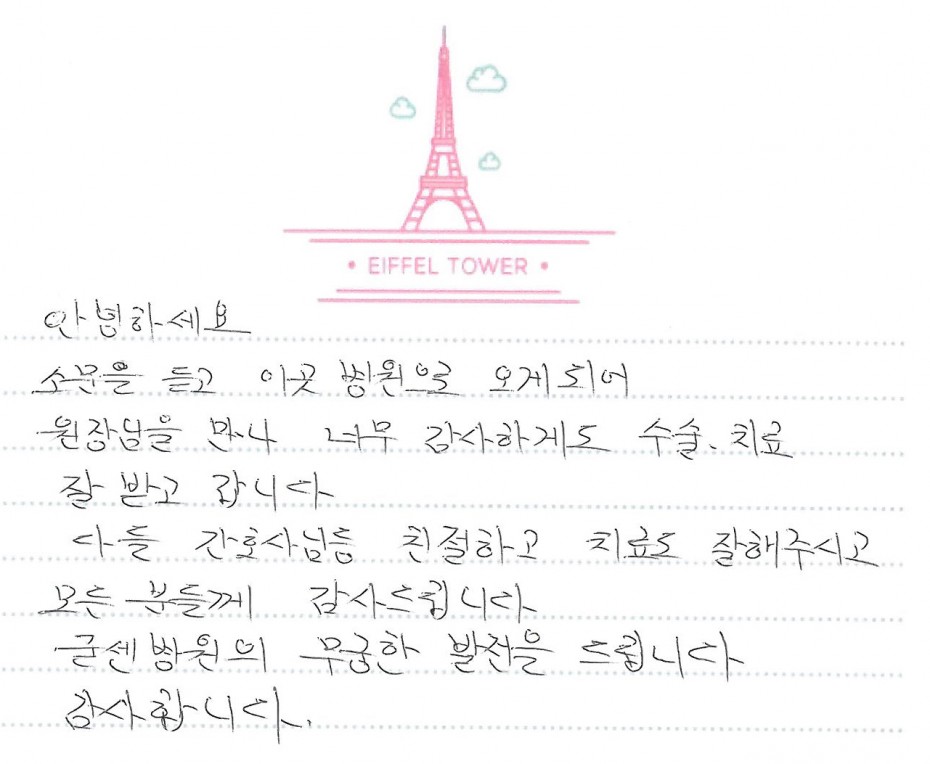 • EIFFEL TOWER •
안녕하세요
소문을 듣고 이곳 병원으로 오게되어
원장님을 만나 너무 감사하게도 수술、치료
잘 받고 갑니다
다들 간호사님들 친절하고 치료도 잘해주시고
모든 분들께 감사드립니다
굳센병원의 무궁한 발전을 드립니다
감사합니다.